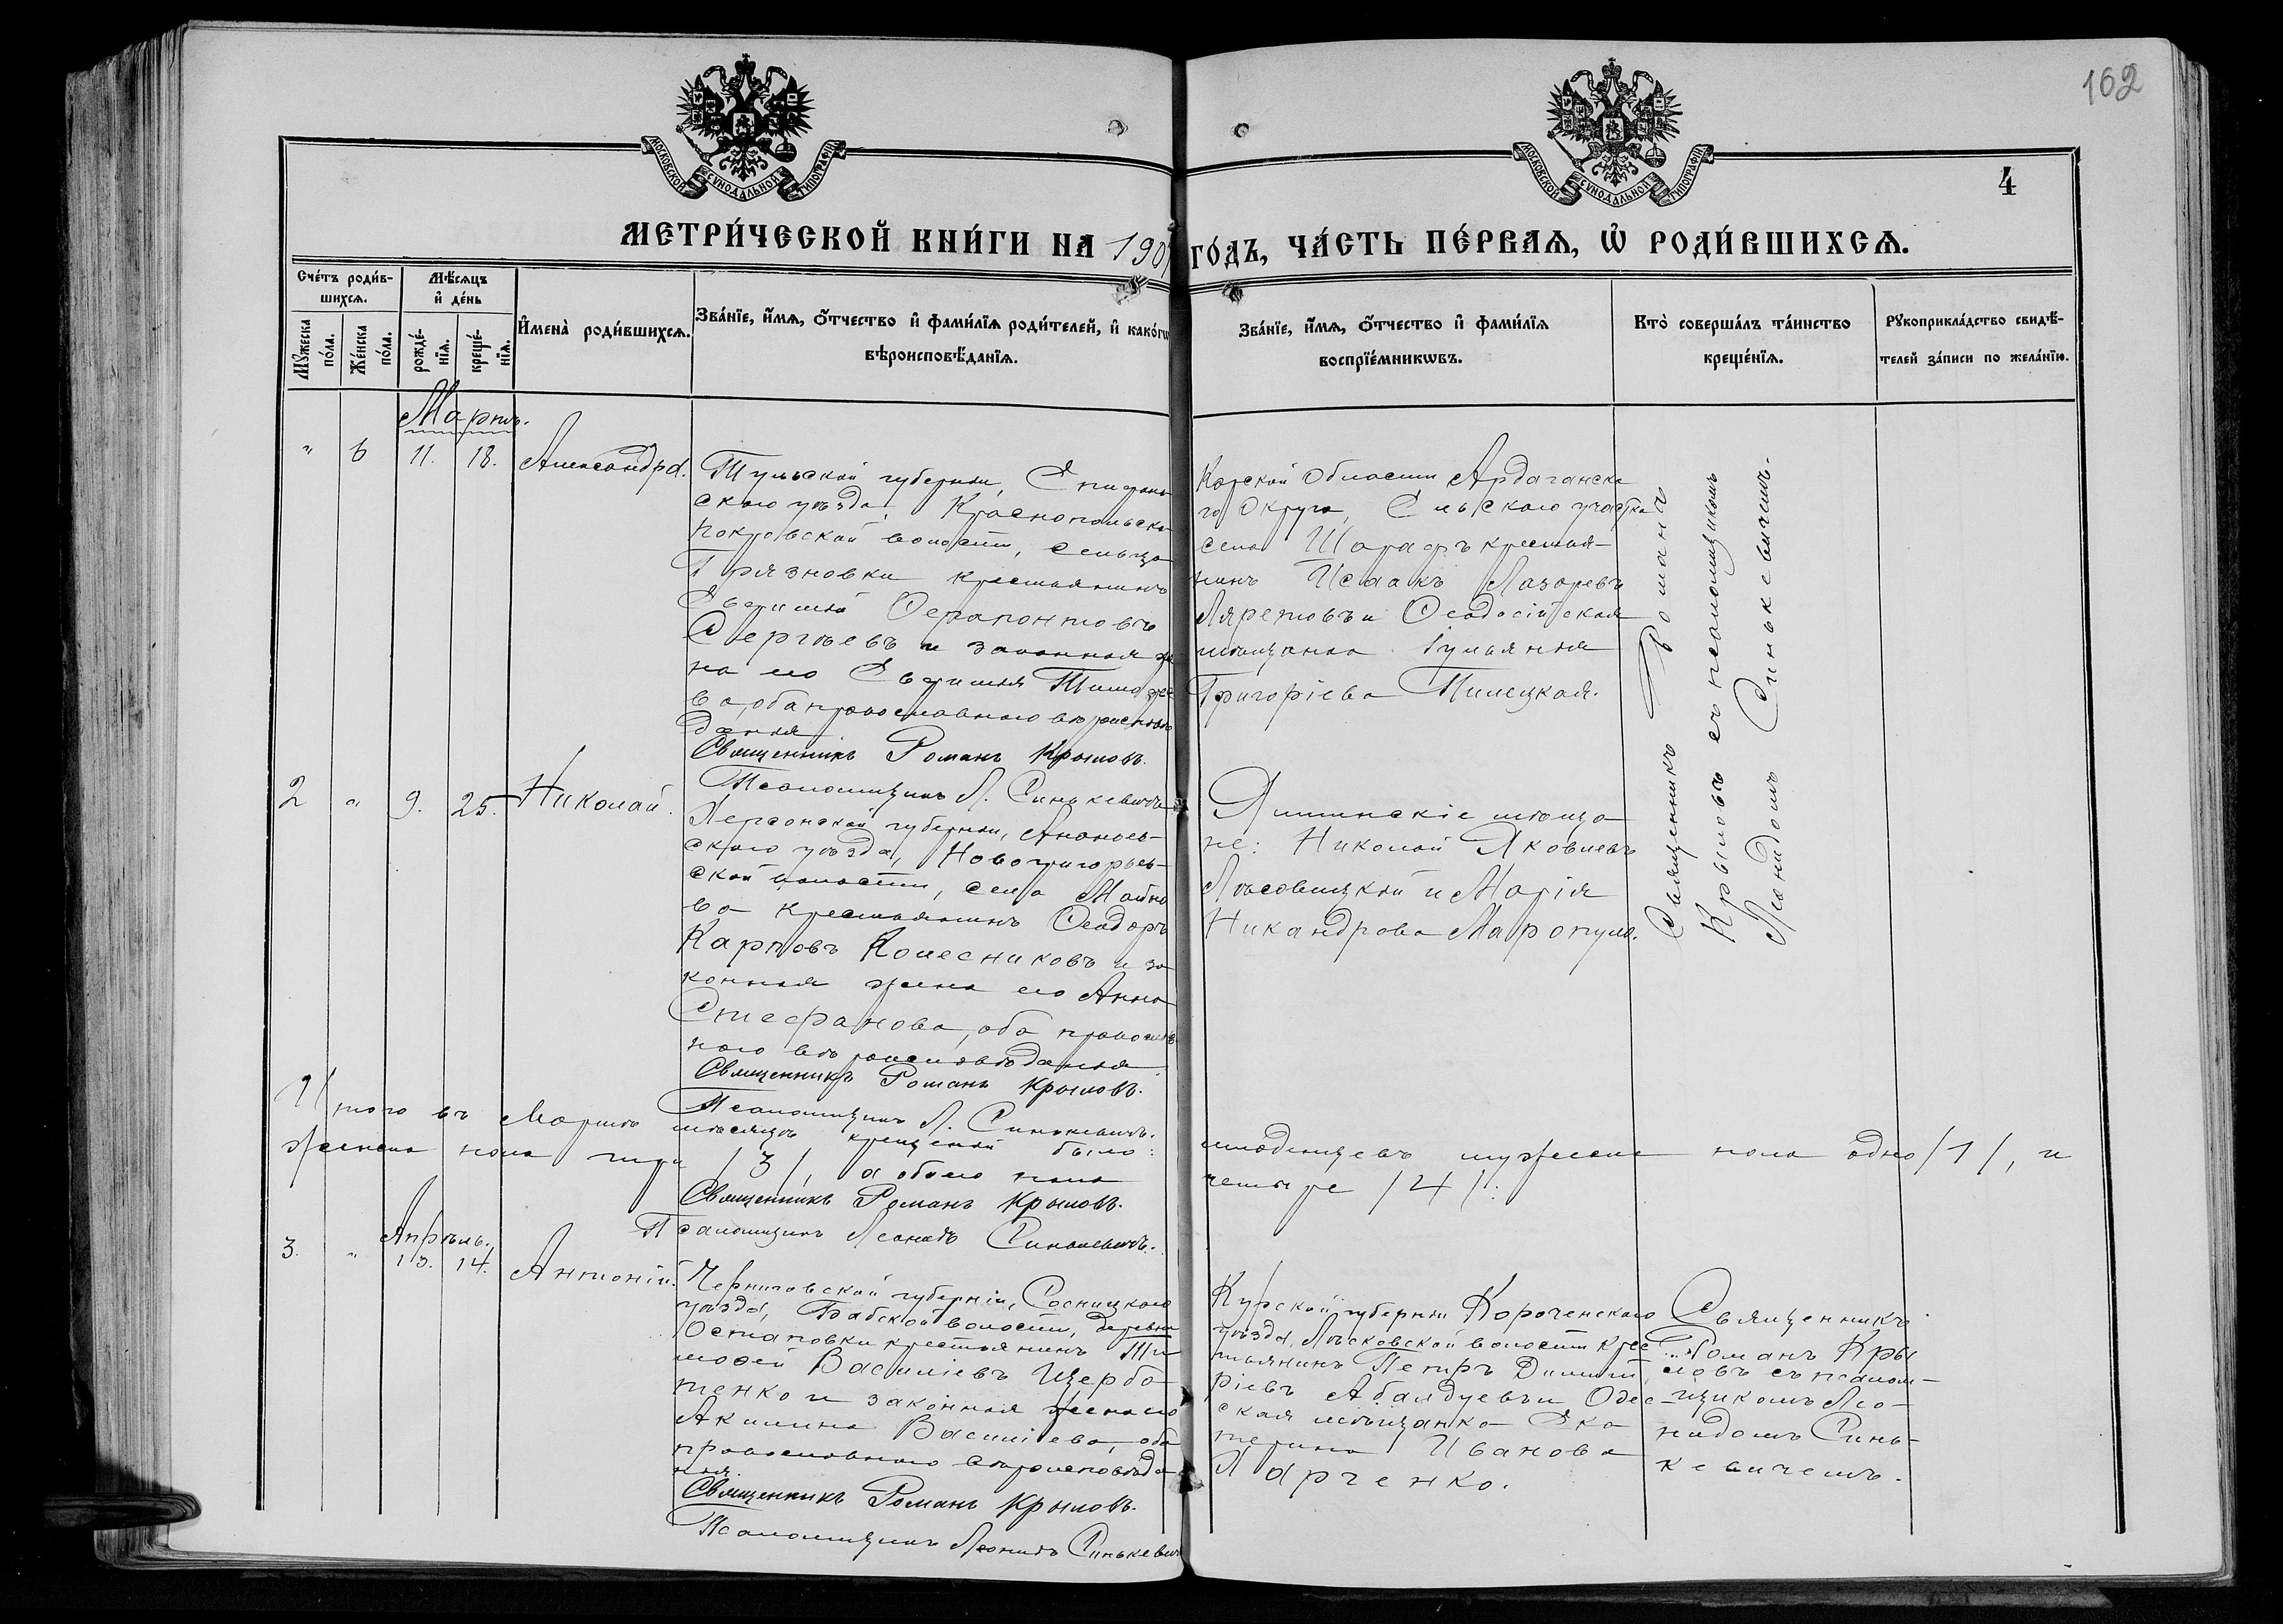 162
МОСКОВСКОЙ СУНОДАЛЬНОЙ ТИПОГРАФІИ
МОСКОВСКОЙ СУНОДАЛЬНОЙ ТИПОГРАФІИ
4
МЕТРИ́ЧЕСКОЙ КНИ́ГИ НА 190
ГО́ДЪ, ЧА́СТЬ ПЕ́РВАѦ, Ѡ҆ РОДИ́ВШИХСѦ.
Сче́тъ роди́в-
шихсѧ.
Мѣ́сѧцъ
и҆ де́нь
Мꙋ́жеска
по́ла.
Же́нска
по́ла.
рожде́-
нїѧ.
креще́-
нїѧ.
И҆мена̀ роди́вшихсѧ.
Зва́нїе, и҆́мѧ, ѻ҆́тчество и҆ фами́лїѧ роди́телей, и҆ како́гѡ
вѣроисповѣ́данїѧ.
Зва́нїе, и҆́мѧ, ѻ҆́тчество и҆ фами́лїѧ
воспрїе́мникѡвъ.
Кто̀ соверша́лъ та́инство
креще́нїѧ.
Рꙋкоприкла́дство свидѣ́-
телей за́писи по жела́нїю.
Мартъ.
" 6 11. 18. Александра.
Тульской губерніи, Епифан-
скаго уѣзда, Краснопольско-
покровской волости, сельца
Грязновки крестьянинъ
Евфимій Ферапонтовъ
Сергѣевъ и законная же
на его Евфимія Тимофее
ва, оба православнаго вѣроисповѣ
данія
Священникъ Романъ Крыловъ.
Псаломщикъ Л. Синькевичъ
Карской Области Ардаганска
го Округа, участка
села Шарафъ крестья-
нинъ Исаакъ Лазаревъ
и Ѳеодосійская
мѣщанка Іуліанія
Григоріева Пилецкая.
Священникъ Романъ
Крыловъ съ псаломщикомъ
Леонидомъ Синькевичемъ.
2 " 9. 25. Николай.
Херсонской губерніи, Ананьев-
скаго уѣзда, Новогригорьев-
ской волости, села Майно
ва крестьянинъ Ѳеодоръ
Карповъ Колесниковъ и за
конная жена его Анна
Стефанова, оба православ
наго вѣроисповѣданія
Священникъ Романъ Крыловъ.
Псаломщикъ Л. Синькевичъ.
Ялтинскіе мѣща
не: Николай Яковлевъ
Лѣсовицкій и Марія
Никандрова Маропуло.
Итого въ Мартѣ мѣсяцѣ крещеній было: младенцевъ мужеска пола одно /1/, и
женска пола три /3/, а обоего пола четыре /4/.
Священникъ Романъ Крыловъ.
Псаломщикъ Леонидъ Синькевичъ.
Апрѣль.
3. " 13. 14. Антоній.
Черниговской губерніи, Сосницкаго
уѣзда, Бабской волости, деревни
Остаповки крестьянинъ Ти
мофей Василіевъ Щерба
тенко и законная жена его
Акилина Василіева, оба
православнаго вѣроисповѣда
нія.
Священникъ Романъ Крыловъ.
Псаломщикъ Леонидъ Синькевич
Курской губерніи Короченскаго
уѣзда, Лѣсковской волости крес
тьянинъ Петръ Димит
ріевъ Абалдуевъ и Одес
ская мѣщанка Ека
терина Иванова
Харченко.
Священникъ
Романъ Кры
ловъ съ псалом-
щикомъ Лео-
нидомъ Синь-
кевичемъ.